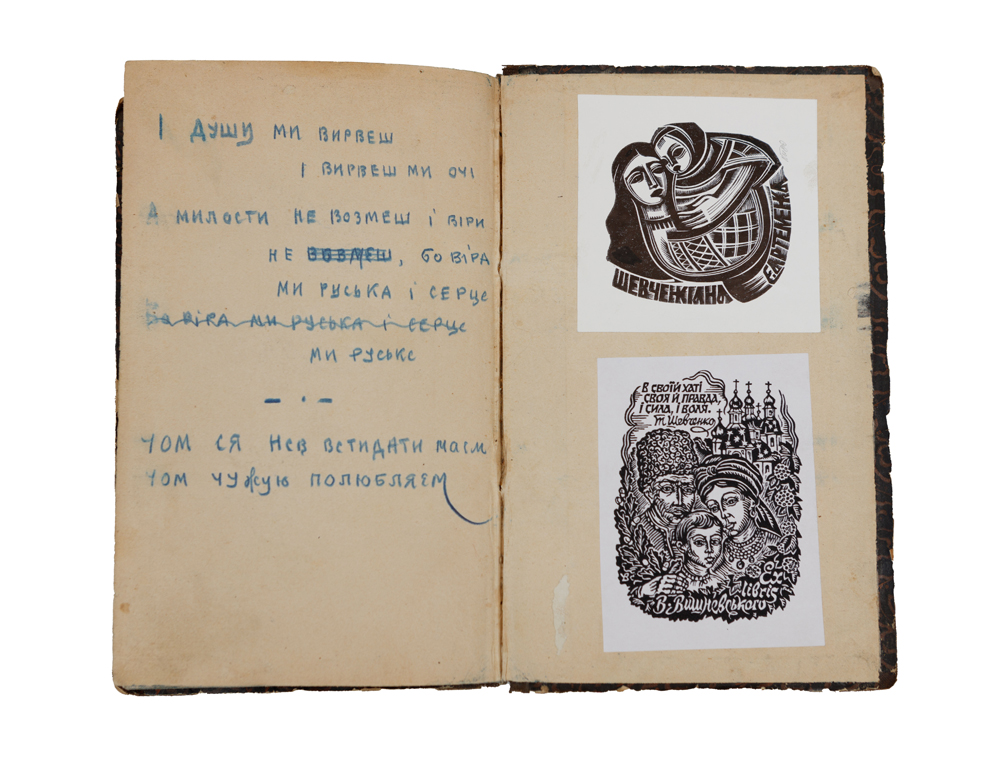 І душу ми вирвеш
і вирвеш ми очі
А милости не возмеш і віри
не возмеш, бо віра
ми руська і серце
ба віра ми руська і серце
ми руське
— . —
Чом ся нев встидати маєм
Чом чужую полюбляєм
ШЕВЧЕНКІАНА
Є.АРТЕМЕНКА
В СВОЇЙ ХАТІ
СВОЯ Й ПРАВДА,
І СИЛА, І ВОЛЯ.
Т. Шевченко
Ex
libris
В. Вишневського